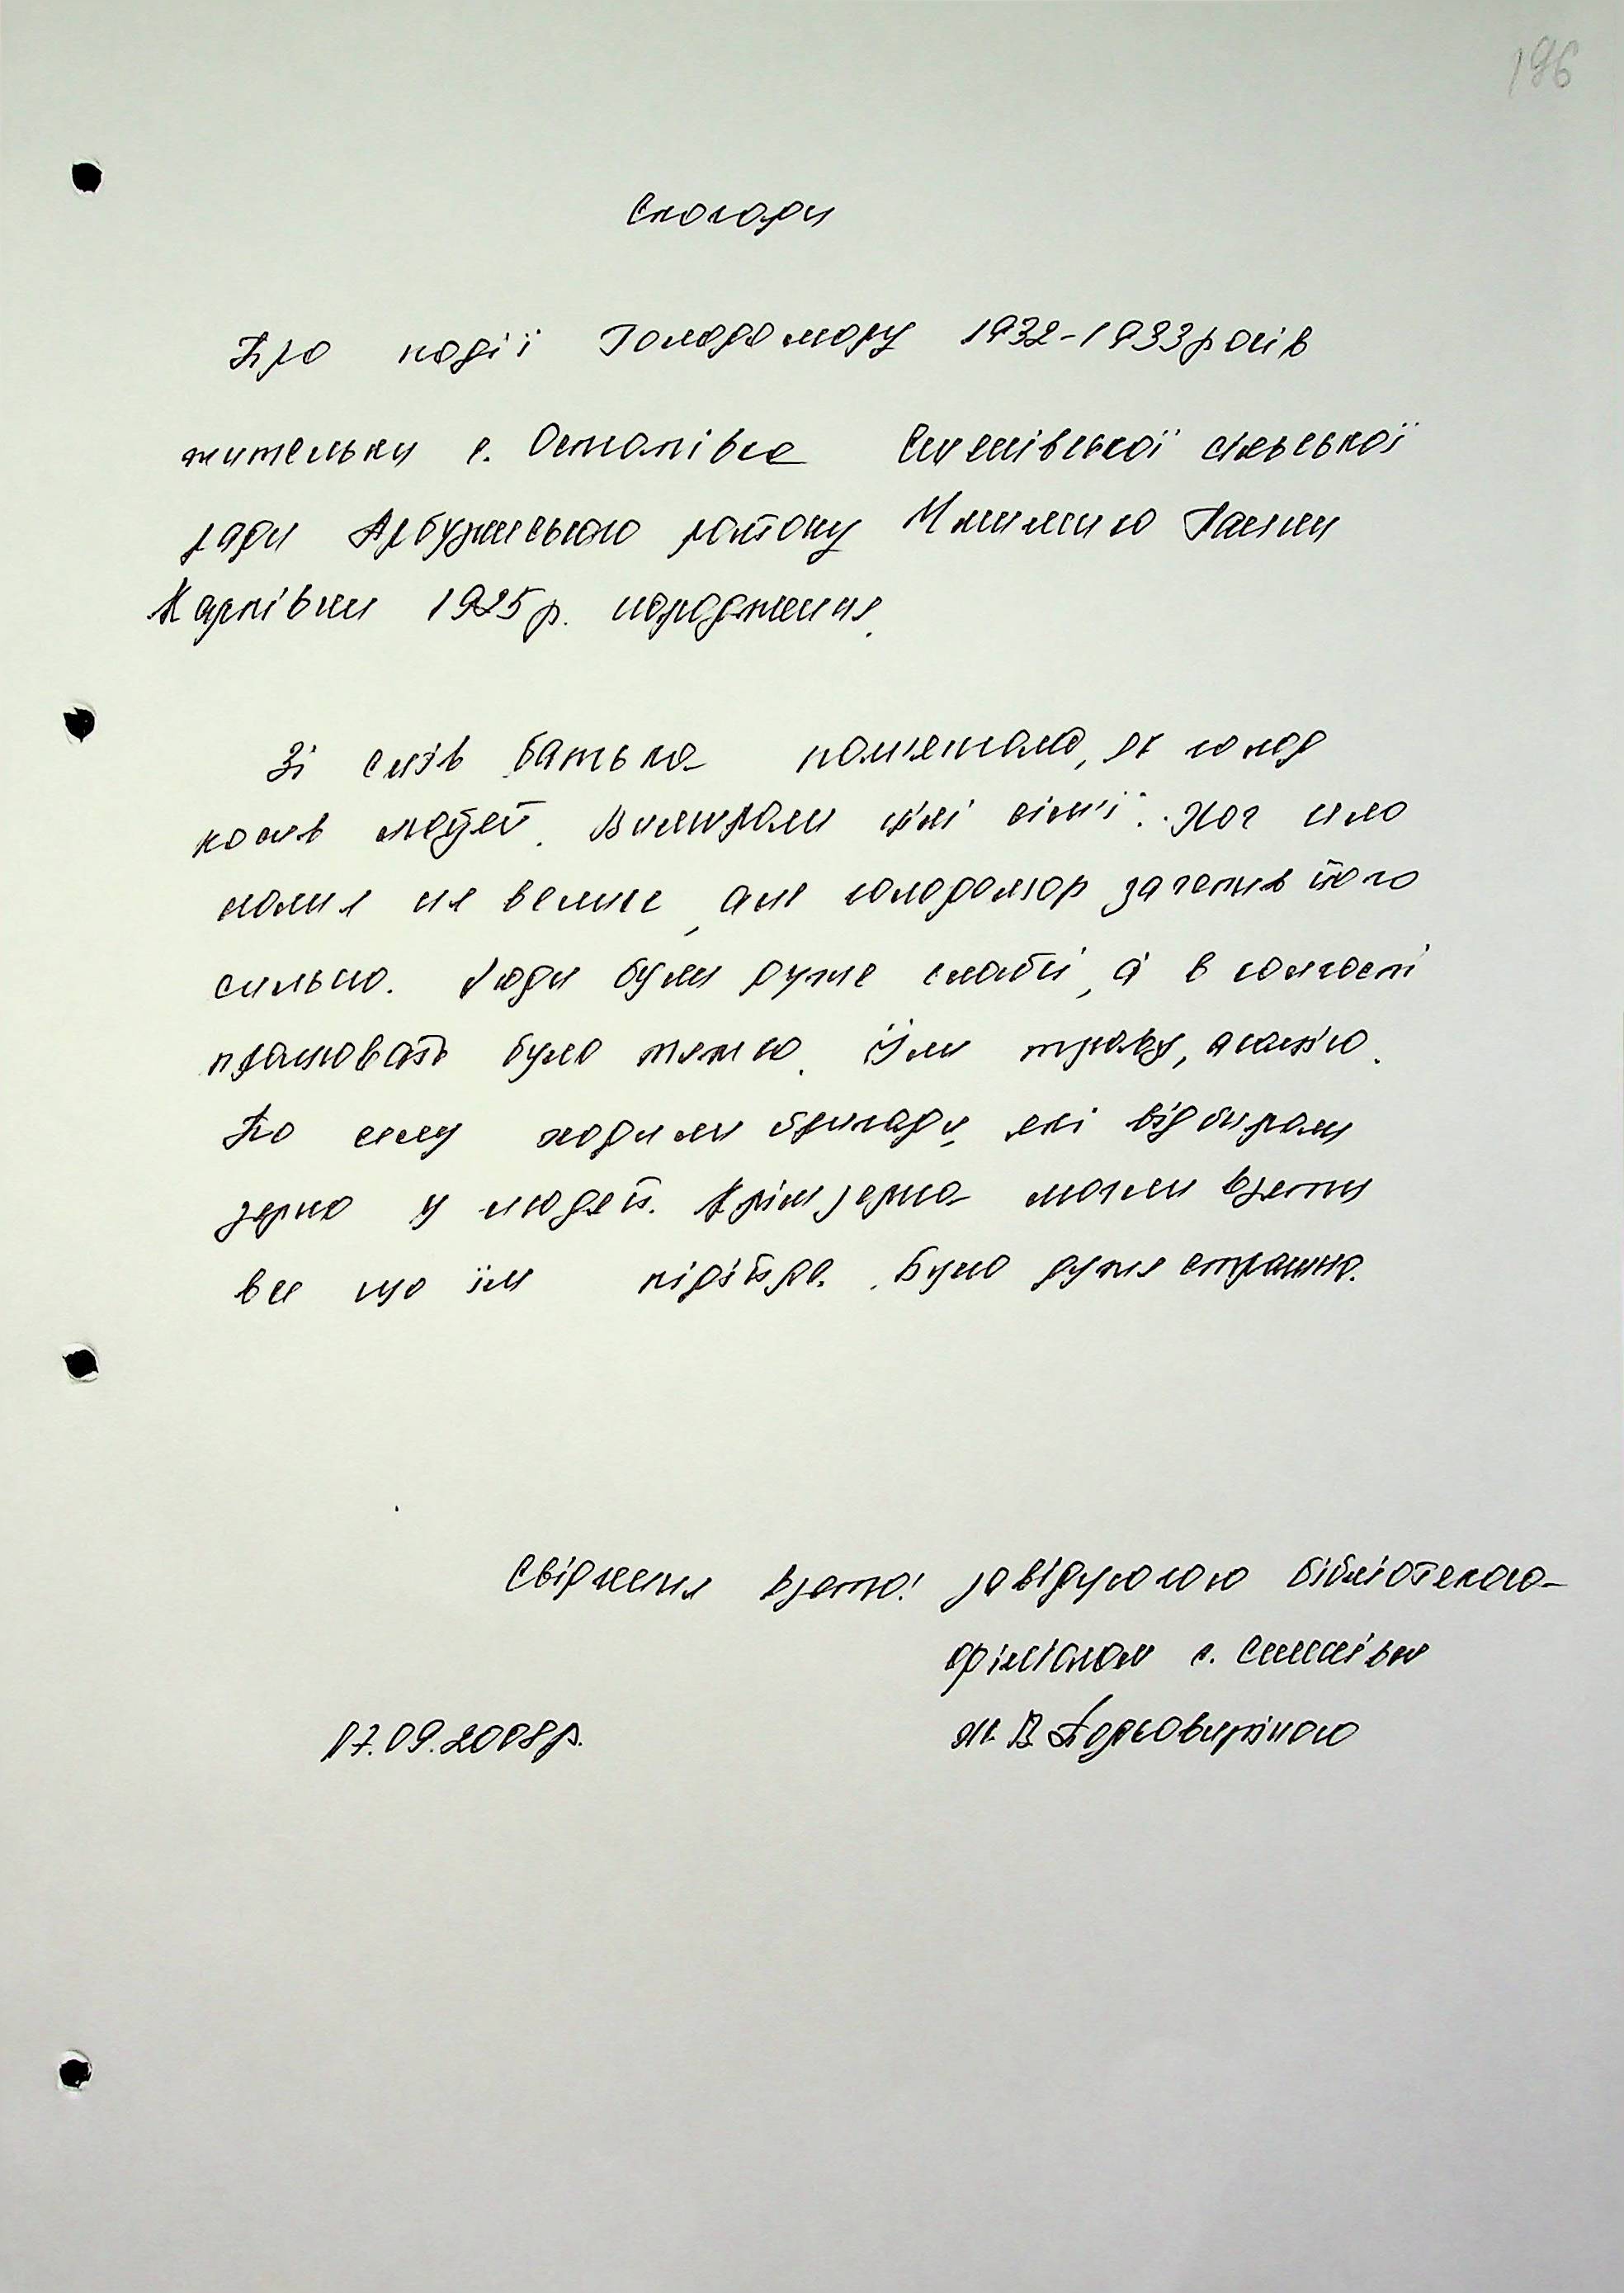 196
Спогади
Про події Голодомору 1932-1933 років
жительки с. Остапівка Семенівської сільської
ради Арбузинського району Ганни
Карпівни 1925 р. народження.
Зі слів батька памʼятаю, як голод
косив людей. Вимирали цілі сімʼї. Хоч село
наше не велике, але голодомор зачепив його
сильно. Люди були дуже слабі, а в колгоспі
працювать було тяжко. Їли траву, акацію.
По селу ходили бригади, які відбирали
зерно у людей. Крім зерна могли взяти
все що їм підійде. Було дуже страшно.
Свідчення взято: завідуючою бібліотекою-
філіалом с. Семенівки
07.09.2008р.